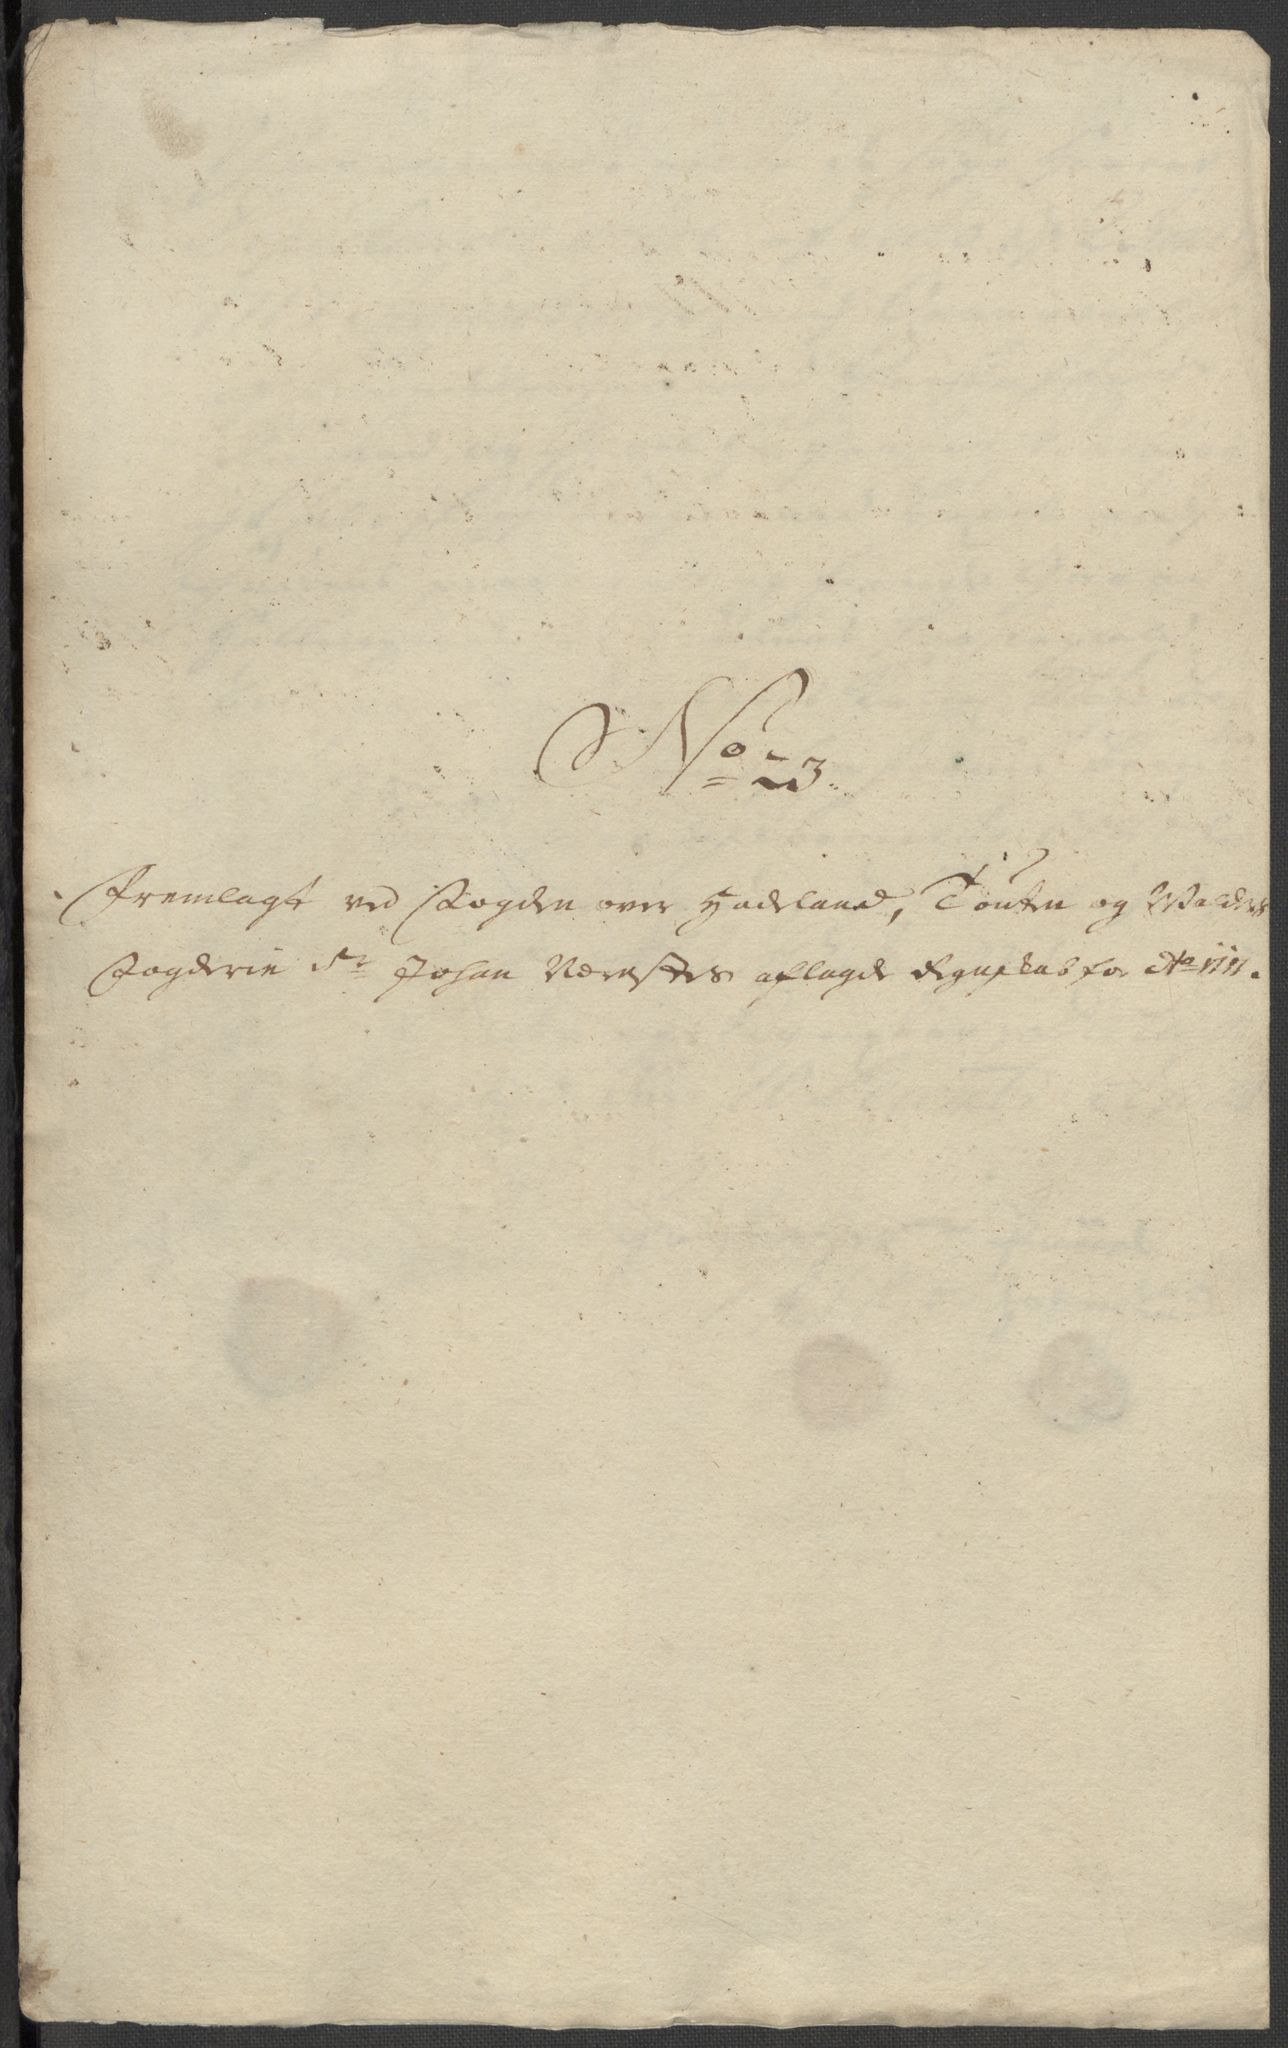 No 23.
Fremlagt ved Fogden over Hadeland, Toten og Walders
Fogderie Sr Johan Nærestes aflagde Regnskab for Ao 1711.